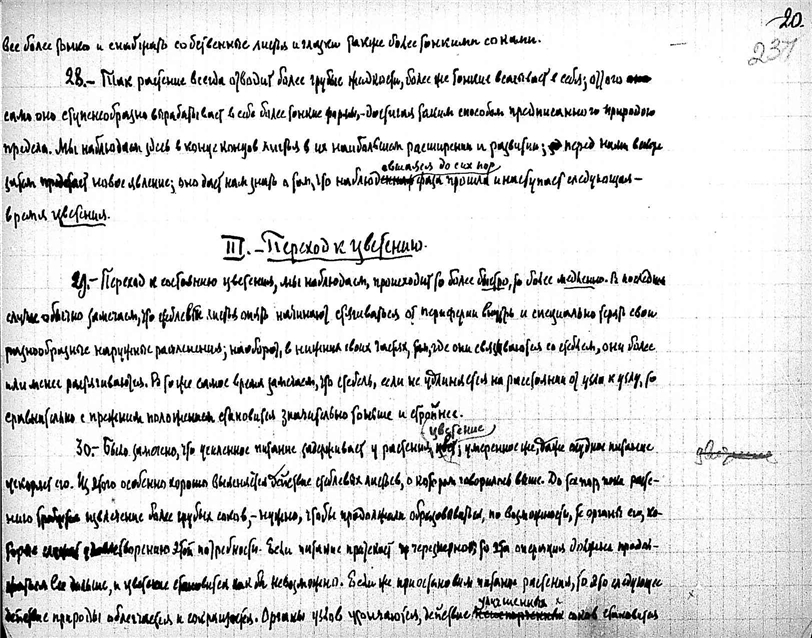 20.
237
все более тонко и снабжать собственные листья и глазки также более тонкими соками.
28.– Так растение всегда отводит более грубые жидкости, более же тонкие всасывает в себя; от того
само оно ступенеобразно вырабатывает в себе более тонкие формы,– достигая таким способом предписанного природою
предела. Мы наблюдаем здесь в конце концов листья в их наибольшем расширении и развитии; перед нами вскоре
авшаяся до сих пор
затем новое явление; оно дает нам знать о том, что наблюд фаза прошла и наступает следующая –
время цветения.
III. – Переход к цветению.
29.– Переход к состоянию цветения, мы наблюдаем, происходит то более быстро, то более медленно. В последнем
случае обычно замечаем, что стеблевые листья опять начинают стягиваться от периферии внутрь и специально терять свои
разнообразные наружные расчленения; наоборот, в нижних своих частях, там, где они связываются со стеблем, они более
или менее растягиваются. В то же самое время замечаем, что стебель, если не удлиняется на расстоянии от узла к узлу, то
сравнительно с прежним положением становится значительно тоньше и стройнее.
цветение
30.– Было замечено, что усиленное питание задерживает у растения цвет; умеренное же, даже скудное питание
ускоряет его. Из этого особенно хорошо выясняется действие стеблевых листьев, о котором говорилось выше. До тех пор, пока расте-
нию требуется извлечение более грубых соков,– нужно, чтобы продолжали образовываться, по возможности, те органы его, ко-
торые служат удовлетворению этой потребности. Если питание протекает чрезмерно, то эта операция должна продол-
жаться все дальше, и цветение становится как бы невозможно. Если же приостановим питание растения, то это следующее
действие природы облегчается и сокращается. Органы узлов утончаются, действие
улучшенных x
соков становится